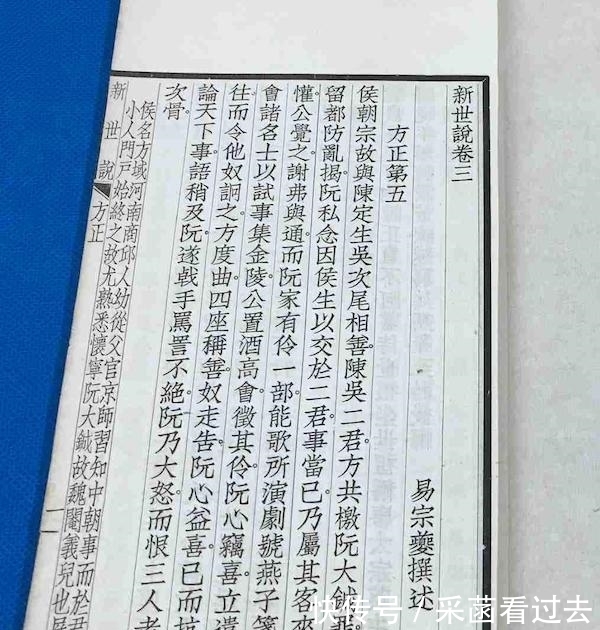 新世說卷三
易宗夔撰述
方正第五
侯朝宗故與陳定生吳次尾相善。陳吳二君方共檄阮大鋮
留都防亂揭。阮私念因侯生以交於二君事當已。乃屬其客來
懽。公覺之。謝弗與通。而阮家有伶一部。能歌所演劇號燕子箋
會諸名士以試事集金陵。公置酒高會。徵其伶。阮心竊喜。立遣
往。而令他奴詗之。方度曲四座稱善。奴走告。阮心益喜。已而抗
論天下事。語稍及阮。遂戟手罵詈不絕。阮乃大怒。而恨三人者
次骨。
侯名方域河南商邱人幼從父官京師習知中朝事而於君
小人門戶始終之故尤熟悉懷寧阮大鋮故魏閹義兒也
新世說 方正 一
快传号 / 采菌看过去